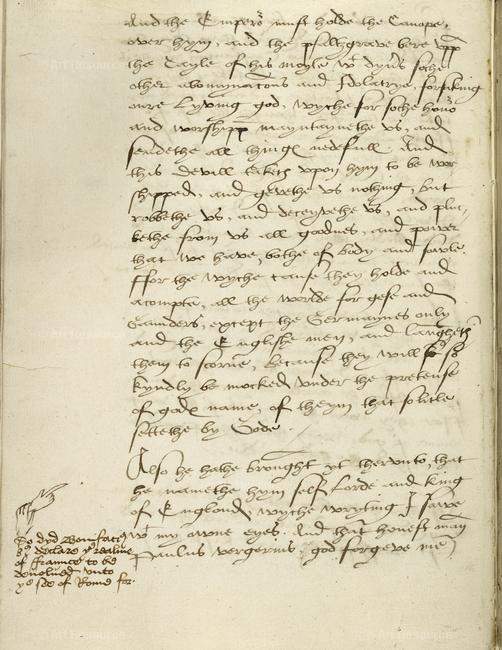 And the Emperor must holde the Canope,
over hym, and the psaltzgrave bere upp
the Tayle of his moyle wt dyvers soche
other abominacons and Idolatrye, forsaking
oure Lyving god, wyche for soche hono
and worshipp mayntaynethe us, and
sendethe all things nedefull. And
this devill taketh upon hym to be wor
shipped, and gevethe us nothing, but
robbethe us, and deceyvethe us, and pluc
kethe from us all goodnes, and power
that we have, bothe of body and sowle.
ffor the wyche cause they holde and
acompte, all the worlde for gese and
Gaunders, except the Germaynes only
and the Englishe men, and laugheth
them to scorne, because they will so
kyndly be mocked under the pretense
of gods name, of theym that so litle
settethe by Gode.
Also he hathe brought yt therunto, that
he namethe hym self Lorde and king
of Englond, wyche wryting I sawe
wt my owne eyes. And that honest man
Paulus vergerius, god forgeve me
So dyd Boniface
declare ye realme
of ffraunce to be
devolved unto
ye see of Rome for.